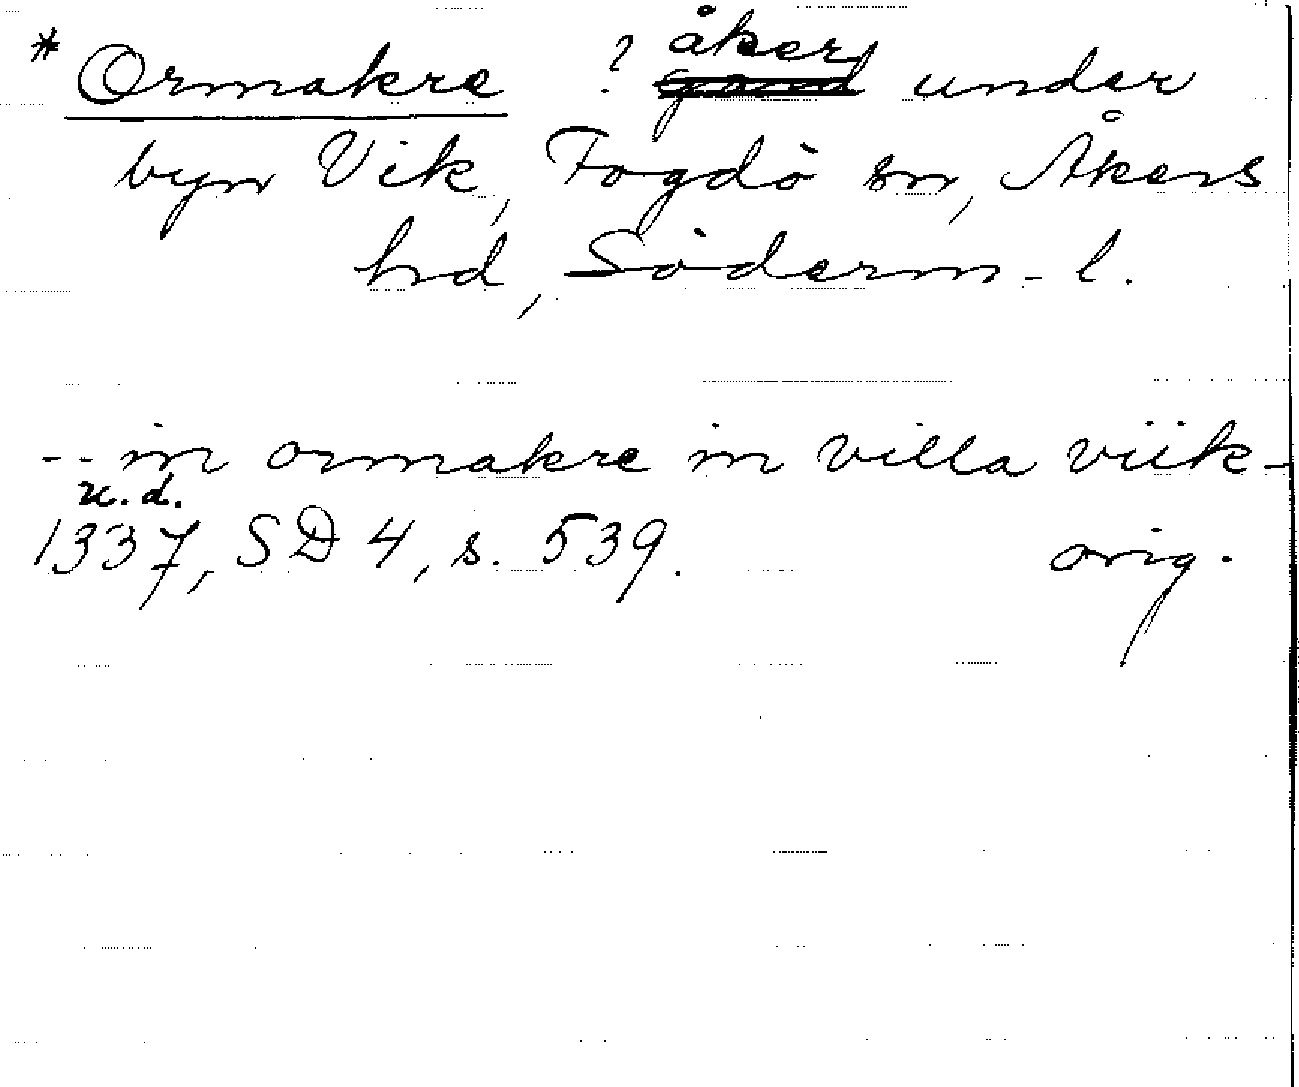 * Ormakre ? åker under
byn Vik, Fogdö sn, Åkers
hd, Söderm-l.
-- in ormakre in villa viik-
u.d.
1337, SD 4, s. 539. orig.